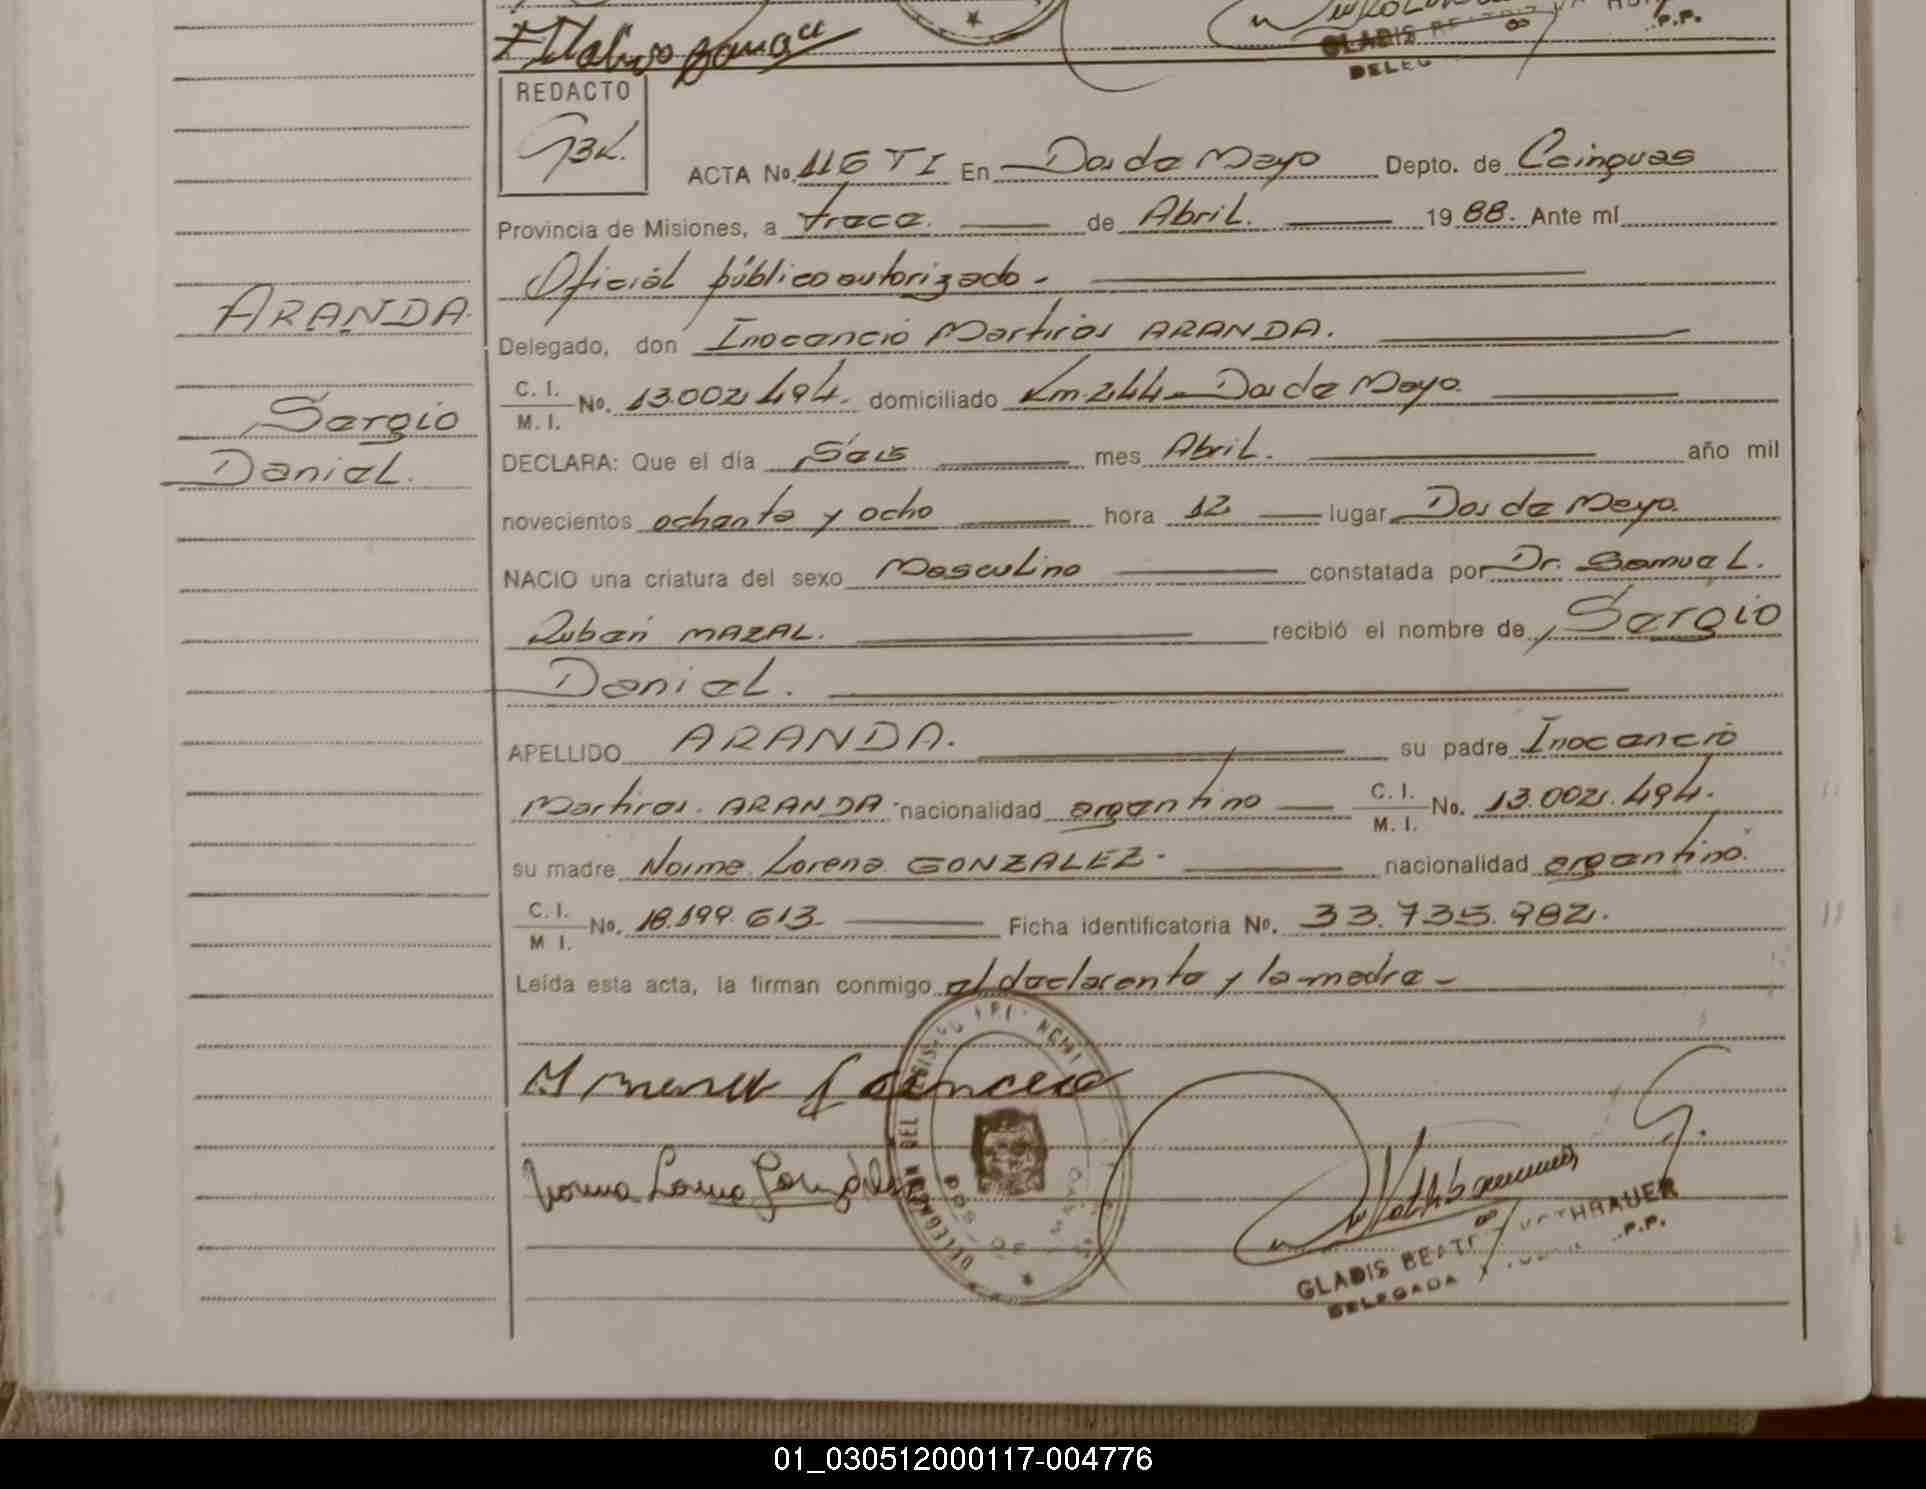 GLADIS
P.P.
REDACTO
ACTA No. 116 TI En Dos de Mayo Depto. de Cainguas
Provincia de Misiones, a trece. de Abril. 1988. Ante mí
Oficial público autorizado.
ARANDA.
Delegado, don Inocencio Martires ARANDA.
C. I.
M. I. No. 13.002.494. domiciliado Km 244 - Dos de Mayo.
Sergio
Daniel.
DECLARA: Que el día Seis mes Abril. año mil
novecientos ochenta y ocho hora 12 lugar Dos de Mayo.
NACIO una criatura del sexo Masculino constatada por Dr. Samuel.
Rubén MAZAL. recibió el nombre de Sergio
Daniel.
APELLIDO ARANDA. su padre Inocencio
Martires. ARANDA. nacionalidad argentino C. I.
M. I. No. 13.002.494.
su madre Norma Lorena GONZALEZ. nacionalidad argentina.
C. I.
M I. No. 18.199.613. Ficha identificatoria No. 33.735.982.
Leída esta acta, la firman conmigo el declarante y la madre -
Norma Lorena Gonzalez
DELEGACION DEL
GLADIS BEATRIZ
DELEGADA
P.P.
01_030512000117-004776